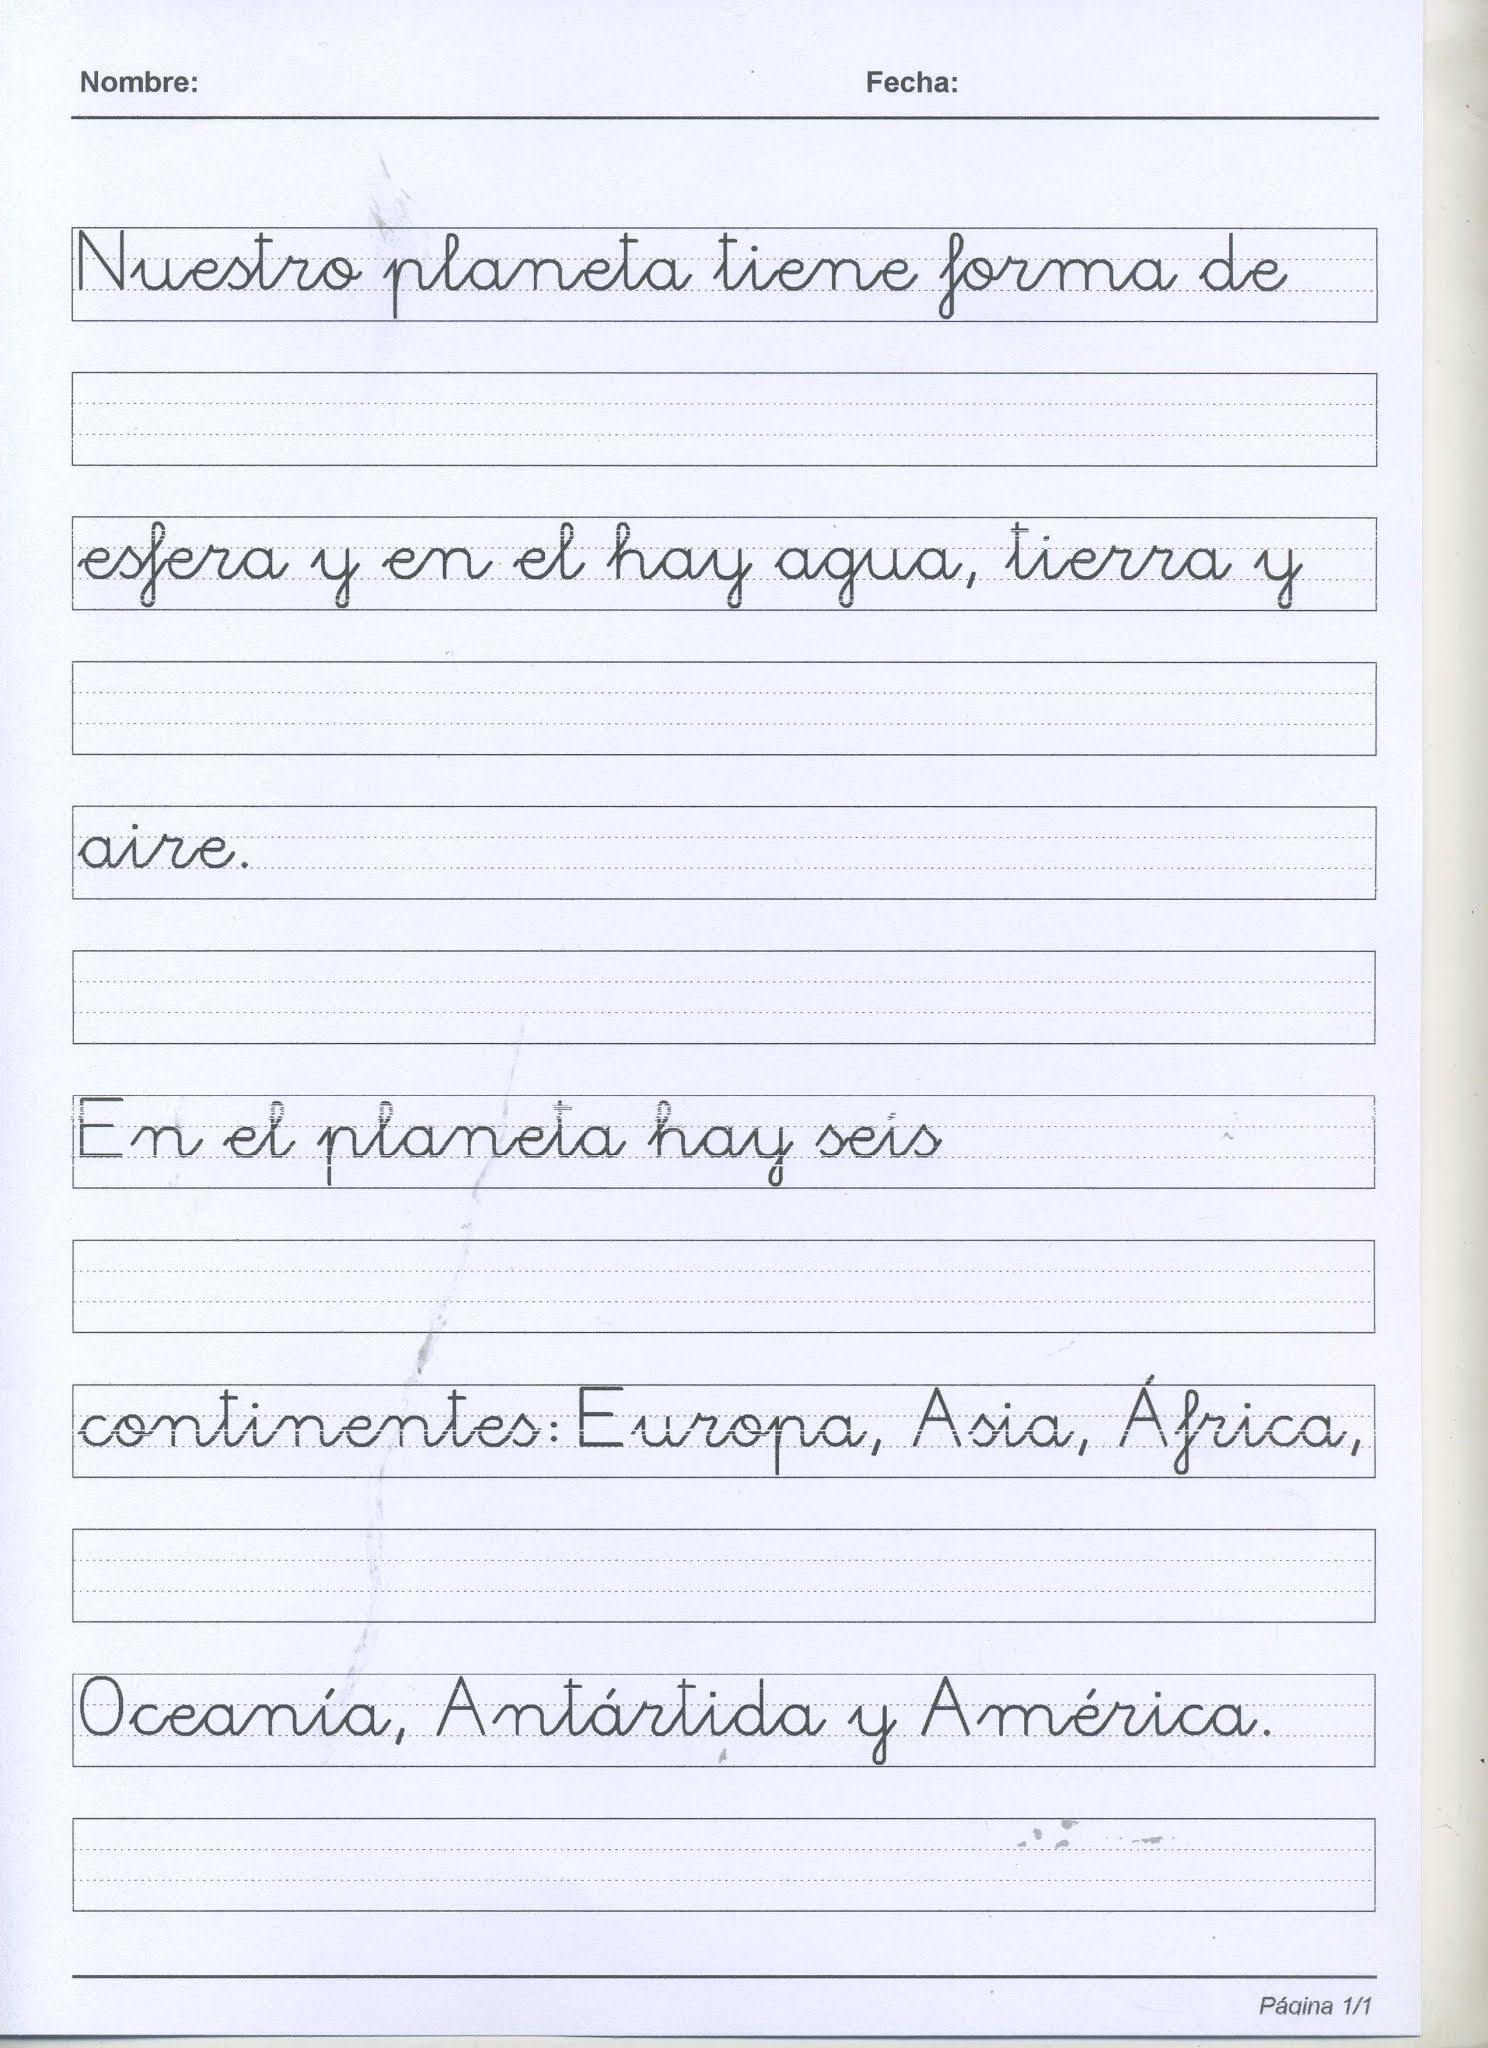 Nombre: Fecha:
Nuestro planeta tiene forma de
esfera y en el hay agua, tierra y
aire.
En el planeta hay seis
continentes: Europa, Asia, África,
Oceanía, Antártida y América.
Página 1/1